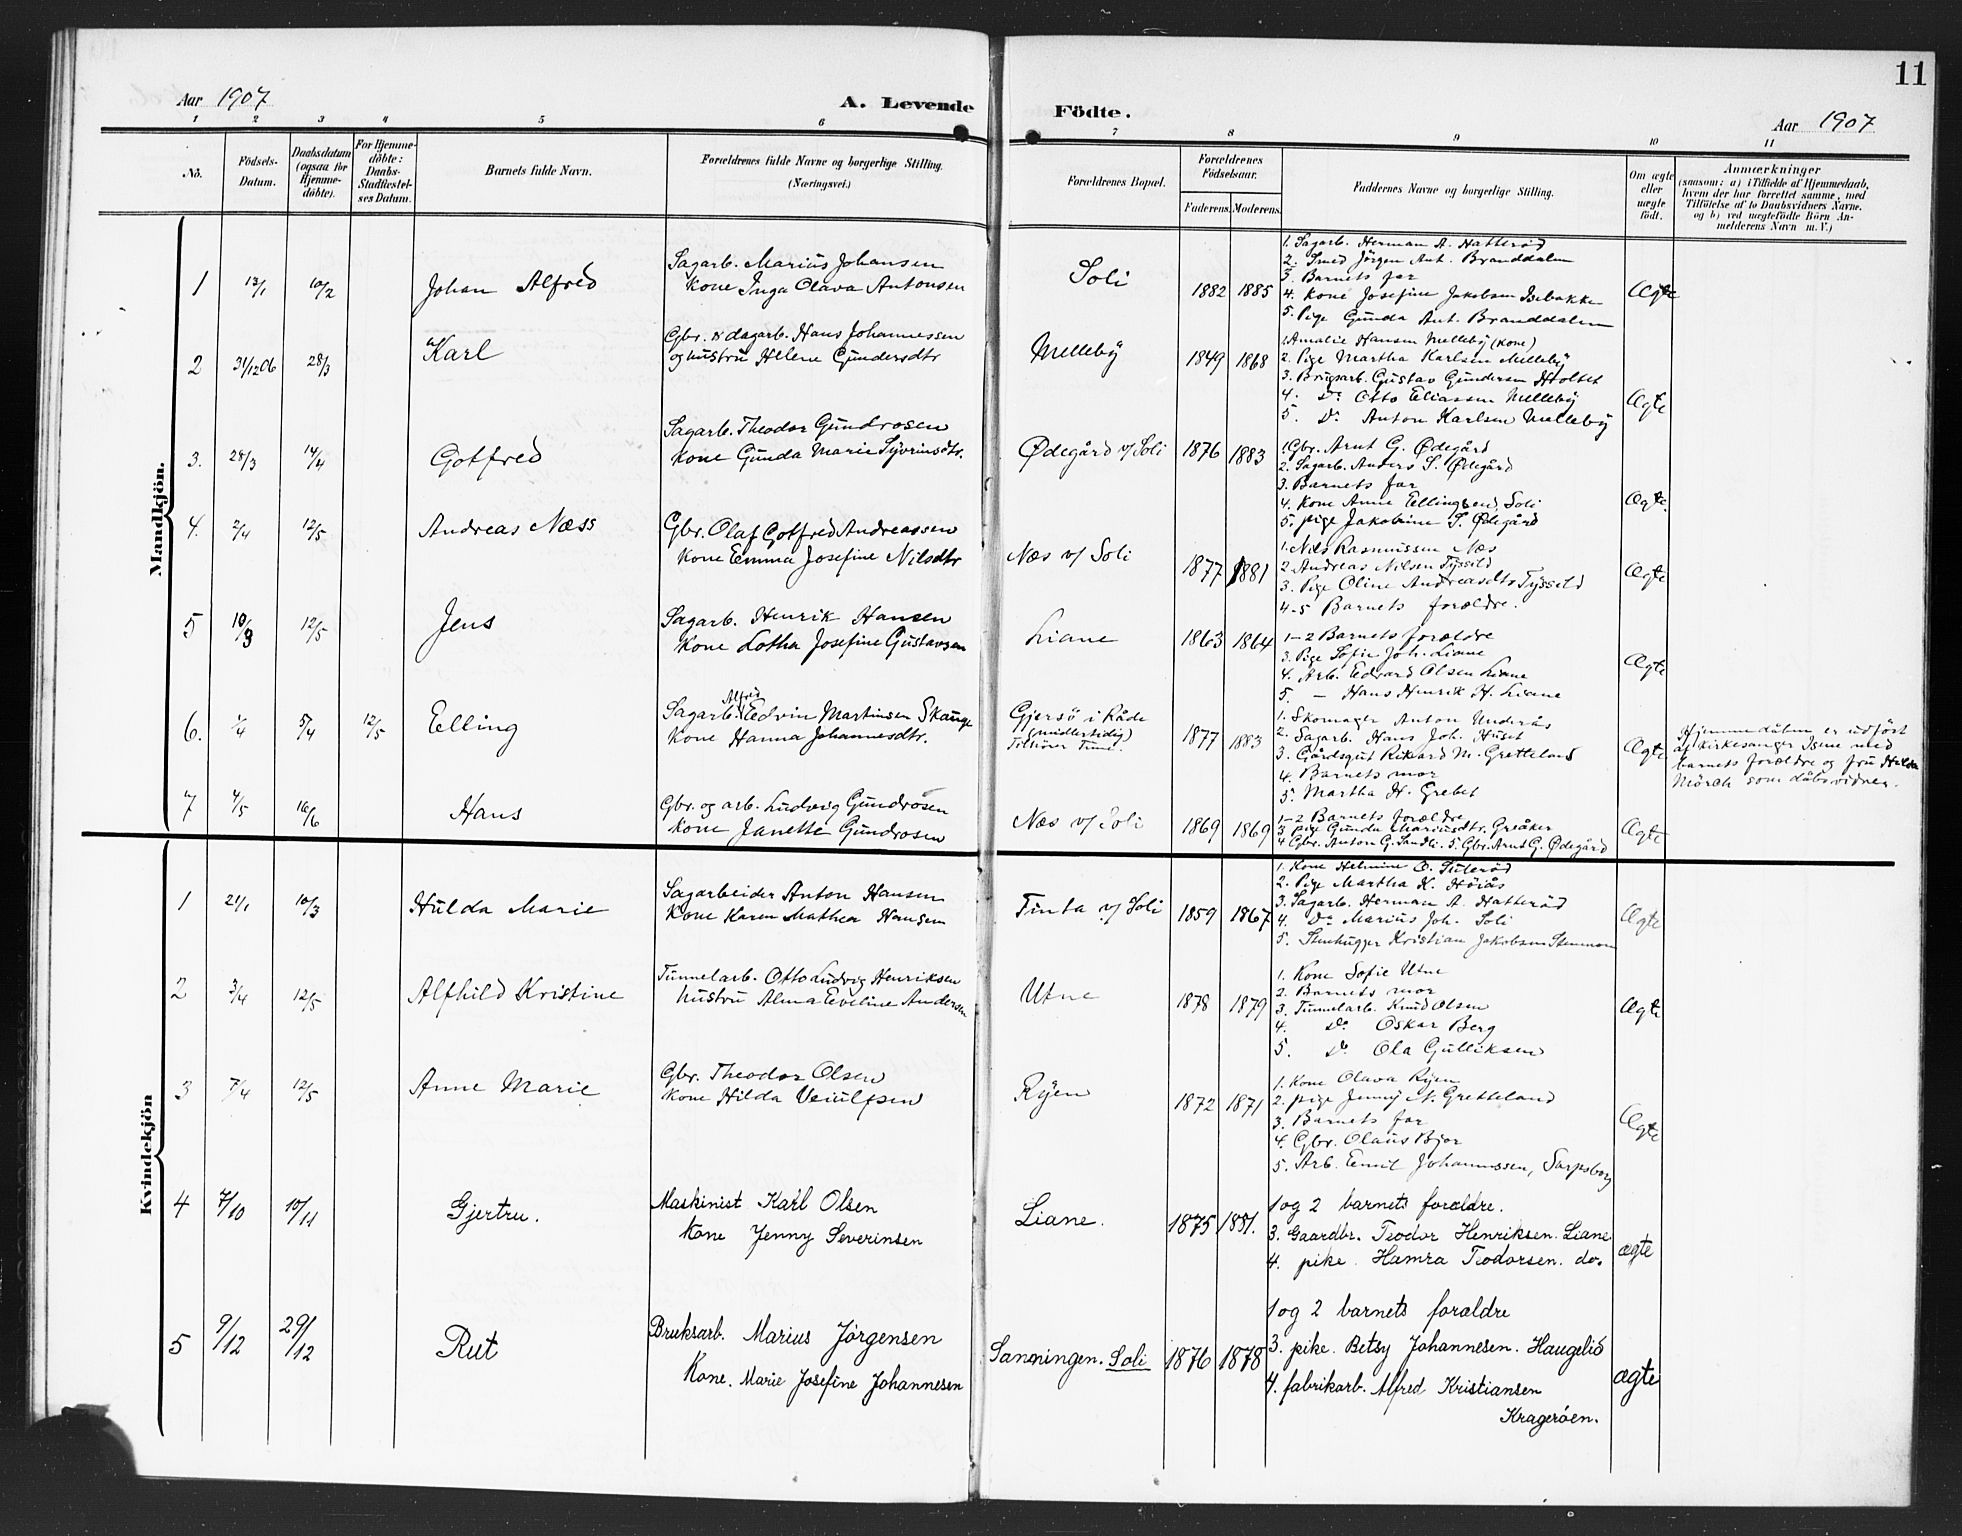 11
Aar 1907
A. Levende
Födte.
Aar 1907
1 2 3 4 5 6 7 8 9 10 11
No.
Födsels-
Datum.
Daabsdatum
(ogsaa for
Hjemme-
döbte).
For Hjemme-
döbte:
Daabs-
Stadfæstel-
ses Datum.
Barnets fulde Navn.
Forældrenes fulde Navne og borgerlige Stilling.
(Næringsvei.)
Forældrenes Bopæl.
Forældrenes
Födselsaar.
Faderens. Moderens.
Faddernes Navne og borgerlige Stilling.
Om ægte
eller
uægte
födt.
Anmærkninger
(saasom: a) i Tilfælde af Hjemmedaab,
hvem der har forrettet samme, med
Tilföielse af to Daabsvidners Navne.
og b) ved uægtefödte Börn An-
melderens Navn m. V.)
Mandkjön.
1 13/1 10/2 Johan Alfred
Sagarb. Marius Johansen
Kone Inga Olava Antonsen
Soli 1882 1885
1. Sagarb. Herman A. Hatteröd
2. Smed Jörgen Ant. Branddalen
3. Barnets far
4. Kone Josefine Jakobsen Isebakke
5. Pige Gunda Ant. Branddalen
Ægte
2 31/12 06 28/3 Karl
Gbr. & dagarb. Hans Johannessen
og hustru Helene Gundersdtr
Melleby 1849 1868
1. Amalie Hansen Melleby (Kone)
2. Pige Martha Karlsen Melleby
3. Brugsarb. Gustav Gundersen Holtet
4. Do Otto Eliassen Melleby
5. Do Anton Karlsen Melleby
Ægte
3. 28/3 14/4 Gotfred
Sagarb. Theodor Gundrosen
Kone Gunda Marie Syvrinsdtr.
Ødegård v/ Soli 1876 1883
1. Gbr. Arnt G. Ødegård
2. Sagarb. Anders S. Ødegård
3. Barnets far
4. Kone Anne Ellingsen, Soli
5. pige Jakobine S. Ødegård
Ægte.
4. 2/4 12/5 Andreas Næss
Gbr. Olaf Gotfred Andreassen
Kone Emma Josefine Nilsdtr
Næs v/ Soli 1877 1881
1. Nils Rasmussen Næs
2. Andreas Nilsen Tyssild
3. Pige Oline Andreasdtr Tyssild
4-5 Barnets forældre.
Ægte
5 10/3 12/5 Jens
Sagarb. Henrik Hansen
Kone Lotha Josefine Gustavsen
Liane 1863 1864
1-2 Barnets forældre
3. Pige Sofie Joh. Liane
4. Arb. Edvard Olsen Liane
5. — Hans Henrik H. Liane
Ægte
6. 1/4 5/4 12/5 Elling
Alfred
Sagarb. Edvin Martinsen Skauge
Kone Hanna Johannesdtr.
Gjersö i Råde
(midlertidig)
Tilhörer Tune.
1877 1883
1. Skomager Anton Underås
2. Sagarb. Hans Joh. Huset
3. Gårdsgut Rikard M. Gretteland
4. Barnets mor
5. Martha H. Grebet
Ægte
Hjemmedåben er udfört
af Kirkesanger Isene med
barnets forældre og fru Hilda
Mörch som dåbsvidner.
7 4/5 16/6 Hans
Gbr. og arb. Ludvig Gundrosen
Kone Janette Gundrosen
Næs v/ Soli 1869 1869
1-2 Barnets forældre
3 pige Gunda Mariusdtr. Greåker
4 Gbr. Anton G. Sandli. 5. Gbr. Arnt G. Ødegård
Ægte
Kvindekjön
1 21/1 10/3 Hulda Marie
Sagarbeider Anton Hansen
Kone Karen Mathea Hansen
Tinta v/ Soli 1859 1867
1. Kone Helmine O. Suteröd
2. Pige Martha K. Höiås
3. Sagarb. Herman A. Hatteröd
4. Do Marius Joh. Soli
5. Stenhugger Kristian Jakobsen
Ægte
2 3/4 12/5 Alfhild Kristine
Tunnelarb. Otto Ludvig Henriksen
hustru Alma Eveline Andersen
Utne 1878 1879
1. Kone Sofie Utne
2. Barnets mor
3. Tunnelarb. Knud Olsen
4. Do Oskar Berg
5. Do Ola Gulliksen
Ægte
3 7/4 12/5 Anne Marie
Gbr. Theodor Olsen
Kone Hilda Veiulfsen
Ryen 1872 1871
1. Kone Olava Ryen
2. pige Jenny N. Gretteland
3. Barnets far
4. Gbr. Olaus Bjor
5. Arb. Emil Johannssen, Sarpsborg
Ægte
4 7/10 10/11 Gjertru.
Maskinist Karl Olsen
Kone Jenny Severinsen
Liane. 1875 1881.
1 og 2 barnets forældre.
3. Gaardbr. Teodor Henriksen. Liane
4. pike. Hamra Teodorsen. do.
ægte
5 9/12 29/12 Rut
Bruksarb. Marius Jörgensen
Kone. Marie Josefine Johannesen
Sanningen. Soli 1876 1878
1 og 2 barnets forældre
3. pike. Betsy Johannesen. Haugelid
4. fabrikarb. Alfred Kristiansen
Krageröen.
ægte